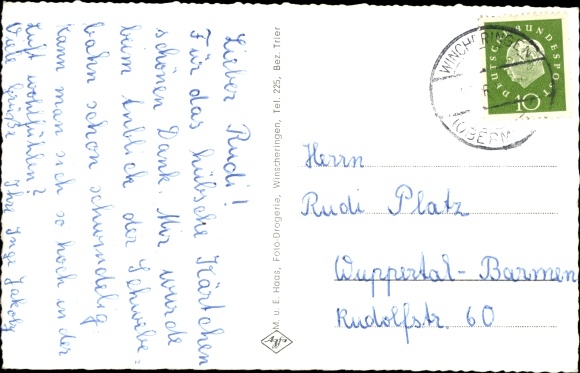 Lieber Rudi!
Für das hübsche Kärtchen
schönen Dank. Mir wurde
beim Anblick der Schwebe=
bahn schon schwindelig
Kann man sich so hoch in der
Luft wohlfühlen?
Viele Grüße Ihre Inge Jakoby
M. u. E. Haas, Foto-Drogerie, Winscheringen, Tel. 225, Bez. Trier
WINCHERINGEN
(OBERN
DEUTSCHE BUNDESPOST
10
Herrn
Rudi Platz
Wuppertal-Barmen
Rudolfstr. 60